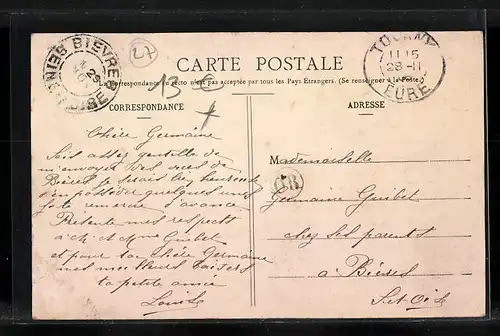 27
BIEVRES
SEINE ET OISE
29
CARTE POSTALE
TOURNY
11 15
28-11
EURE
La Correspondance au recto n'est pas acceptée par tous les Pays Étrangers. (Se renseigner à la Poste)
13 €
CORRESPONDANCE
ADRESSE
Chère Germaine
Sois assez gentille de
m'envoyer des vues de
Bièvres je serais bien heureuse
d'en posséder quelques unes
je te remercie d'avance.
Présente mes respects
à Mr et Mme Guibet
et pour toi Chère Germaine
mes meilleurs baisers
ta petite amie
Louise
Mademoiselle
OR
Germaine Guibet
chez ses parents
à Bièvres
S. et Oise